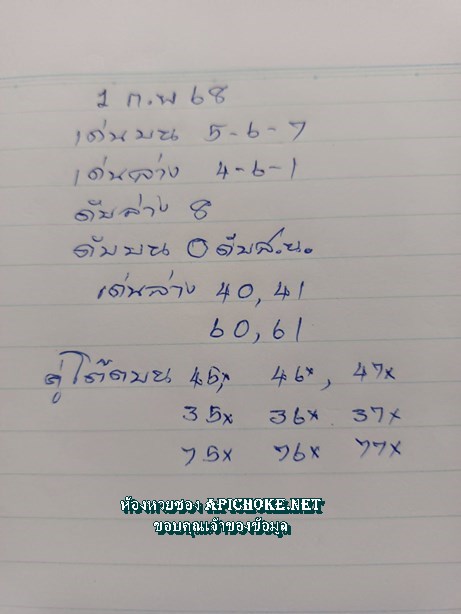 1 ก.พ 68
เด่นบน 5-6-7
เด่นล่าง 4-6-1
ดับล่าง 8
ดับบน 0 ดับส.น.
เด่นล่าง 40, 41
60, 61
คู่โต๊ดบน 45x, 46x, 47x
35x 36x 37x
75x 76x 77x
ห้องหวยซอง APICHOKE.NET
ขอบคุณเจ้าของข้อมูล